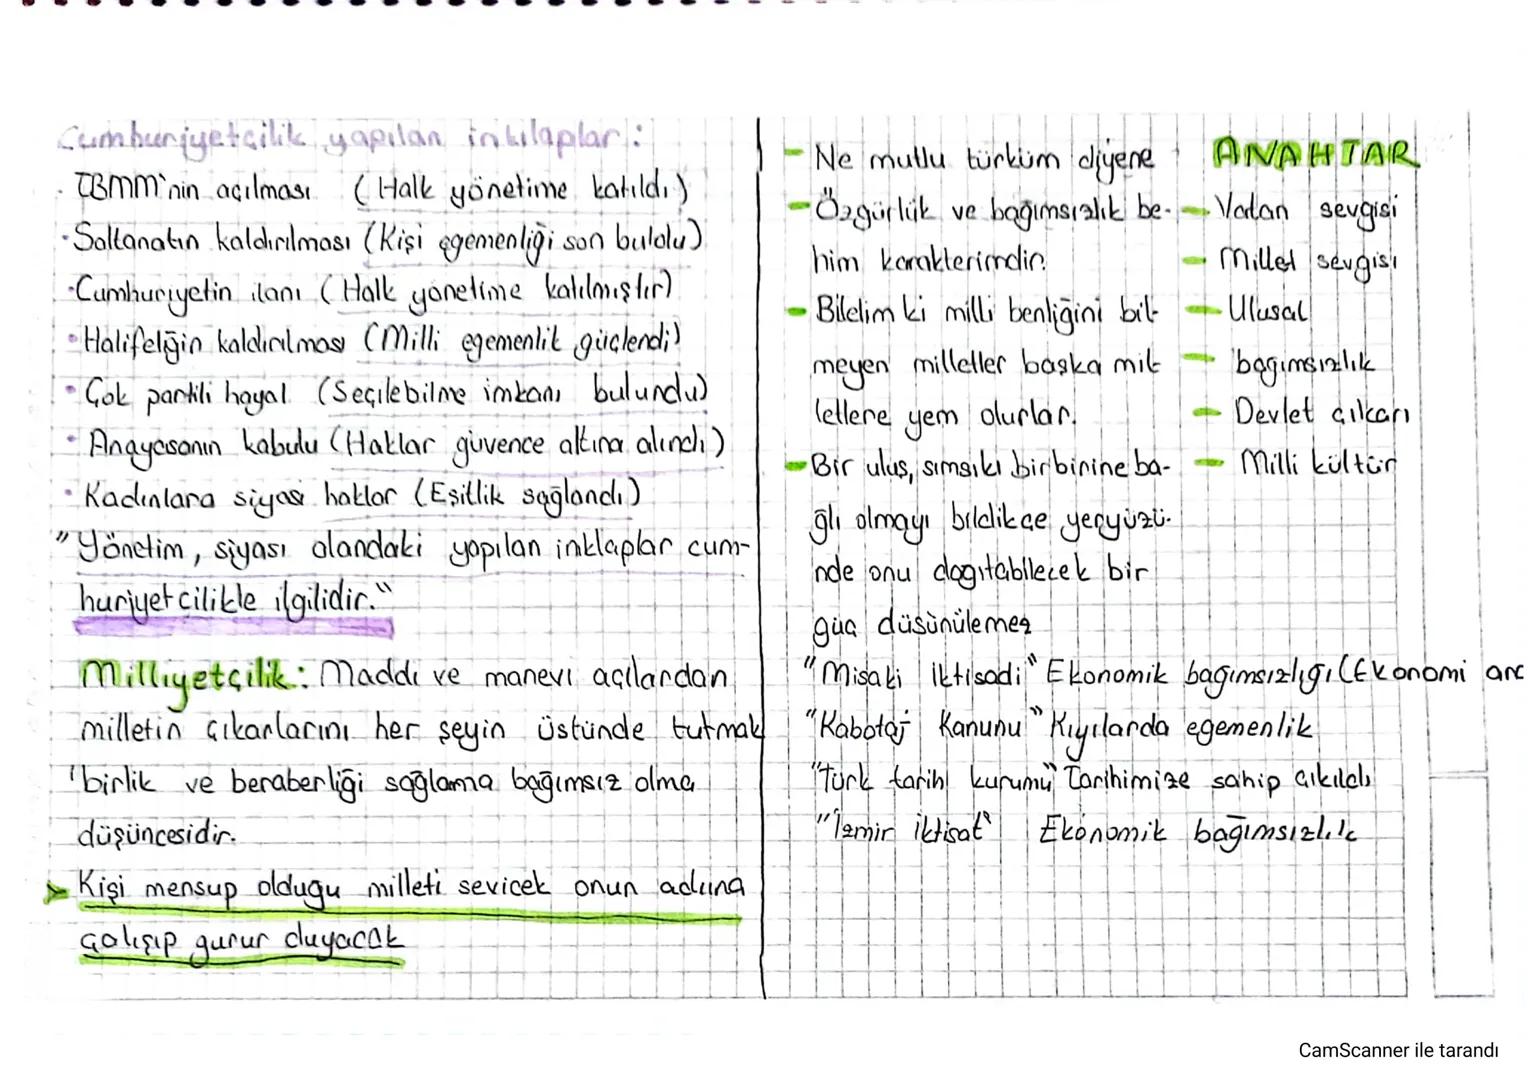 Cumhuriyetçilik yapılan inkılaplar:
· TBMM'nin açılması (Halk yönetime katıldı)
· Saltanatın kaldırılması (Kişi egemenliği son buldu)
· Cumhuriyetin ilanı (Halk yönetime katılmıştır)
· Halifeliğin kaldırılması (Milli egemenlik güçlendi)
· Çok partili hayat (Seçilebilme imkanı bulundu)
· Anayasanın kabulu (Haklar güvence altına alındı)
· Kadınlara siyasi haklar (Eşitlik sağlandı)
"Yönetim, siyası alandaki yapılan inklaplar cum-
huriyetçilikle ilgilidir."
Milliyetçilik: Maddi ve manevi açılardan
milletin çıkarlarını her şeyin üstünde tutmak
birlik ve beraberliği sağlama bağımsız olma
düşüncesidir.
Kişi mensup olduğu milleti sevicek onun adına
çalışıp gurur duyacak
- Ne mutlu türküm diyene
- Özgürlük ve bağımsızlık be-
nim karakterimdir.
- Bilelim ki milli benliğini bil-
meyen milletler başka mil
letlere yem olurlar.
- Bir ulus, sımsıkı birbirine ba-
ğlı olmayı bildikçe yeryüzü-
nde onu dağıtabilecek bir
güç düşünülemez
ANAHTAR
- Vatan sevgisi
- Millet sevgisi
- Ulusal
- bağımsızlık
- Devlet çıkarı
- Milli kültür
"Misaki iktisadi" Ekonomik bağımsızlığı (Ekonomi
"Kabotaj Kanunu" Kıyılarda egemenlik
"Türk tarih kurumu" Tarihimize sahip çıkıldı
"İzmir iktisat" Ekonomik bağımsızlık
CamScanner ile tarandı